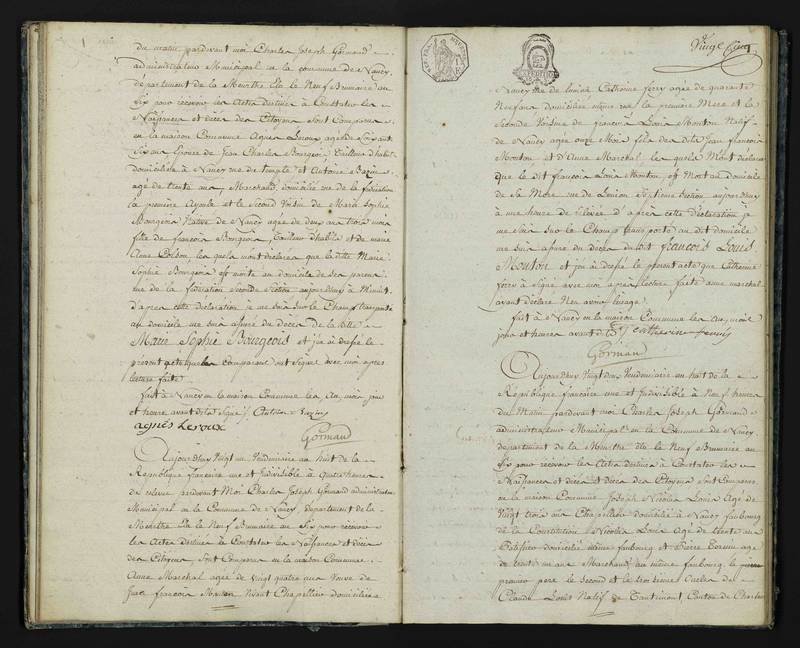 du matin pardevant moi Charles Joseph Gormand
administrateur Municipal en la commune de Nancy
département de la Meurthe Elu le Neuf Brumaire an
Six pour recevoir les Actes destinés à Constater les
Naissances et décès des Citoyens sont Comparus
en la maison Commune Agnès Leroux agée de soixante
Six ans Epouse de Jean Charles Bourgeois Tailleur d'habits
domiciliée à Nancy rue du temple et Antoine
agé de trente ans Marchand domicilié rue de la fédération
la première Ayeule et le Second Voisin de Marie Sophie
Bourgeois Native de Nancy agée de deux ans trois mois
fille de françois Bourgeois Tailleur d'habits et de marie
Anne les quels mont déclaré que la ditte Marie
Sophie Bourgeois est morte au domicile de ses parens
rue de la fédération Seconde Section aujourd'huy à Minuit
d'apres cette déclaration je me suis sur le Champ transporté
au domicile me suis assuré du décès de la ditte
Marie Sophie Bourgeois et j'en ai dressé le
présent acte que les comparans ont signé avec moi apres
lecture faite
fait à Nancy en la maison Commune les an, mois jour
et heure avant dits Signé Antoine
agnès Leroux
Gormand
Aujourd'huy Vingt un Vendémiaire an huit de la
République française une et Indivisible à quatre heures
de relevé pardevant Moi Charles Joseph Gormand administrateur
Municipal en la Commune de Nancy département de la
Meurthe Elu le Neuf Brumaire an Six pour recevoir
les Actes destinés à Constater les Naissances et décès
des Citoyens sont Comparus en la maison Commune
Anne Marchal agée de Vingt quatre ans Veuve de
Jean françois Mouton Vivant Chapellier domiciliée
Vingt Cinq
à Nancy rue de Catherine ferry agée de quarante
Neuf ans domiciliée même rue la première Mere et la
Seconde Voisine de françois Louis Mouton Natif
de Nancy agé onze Mois fils des dits Jean françois
Mouton et d'Anne Marchal les quels Mont déclaré
que le dit françois Louis Mouton est Mort au domicile
de Sa Mere rue de Section aujourd'huy
à une heure de relevée d'apres cette déclaration je
me suis sur le Champ transporté au dit domicile
me suis assuré du décès du dit françois Louis
Mouton et j'en ai dressé le présent acte que Catherine
ferry à signé avec moi apres lecture faite anne marchal
ayant déclaré Nen avoir l'usage
fait à Nancy en la maison Commune les an, mois
jour et heures avant dits Catherine ferry
Gormand
Aujourd'huy Vingt deux Vendémiaire an huit de la
République française une et Indivisible à Neuf heures
du Matin pardevant moi Charles Joseph Gormand
administrateur Municipal en la Commune de Nancy
département de la Meurthe Elu le Neuf Brumaire an
Six pour recevoir les Actes destinés à Constater les
Naissances et décès des Citoyens sont Comparus
en la maison Commune Joseph Nicolas Louis Agé de
Vingt trois ans Chapellier domicilié à Nancy faubourg
de la Constitution Nicolas Louis Agé de trente ans
Patissier domicilié même faubourg et Pierre agé
de trente un ans Marchand au même faubourg le
premier pere le second et le troisieme Oncles de
Claude Louis Natif de Tantimont, Canton de Charmes